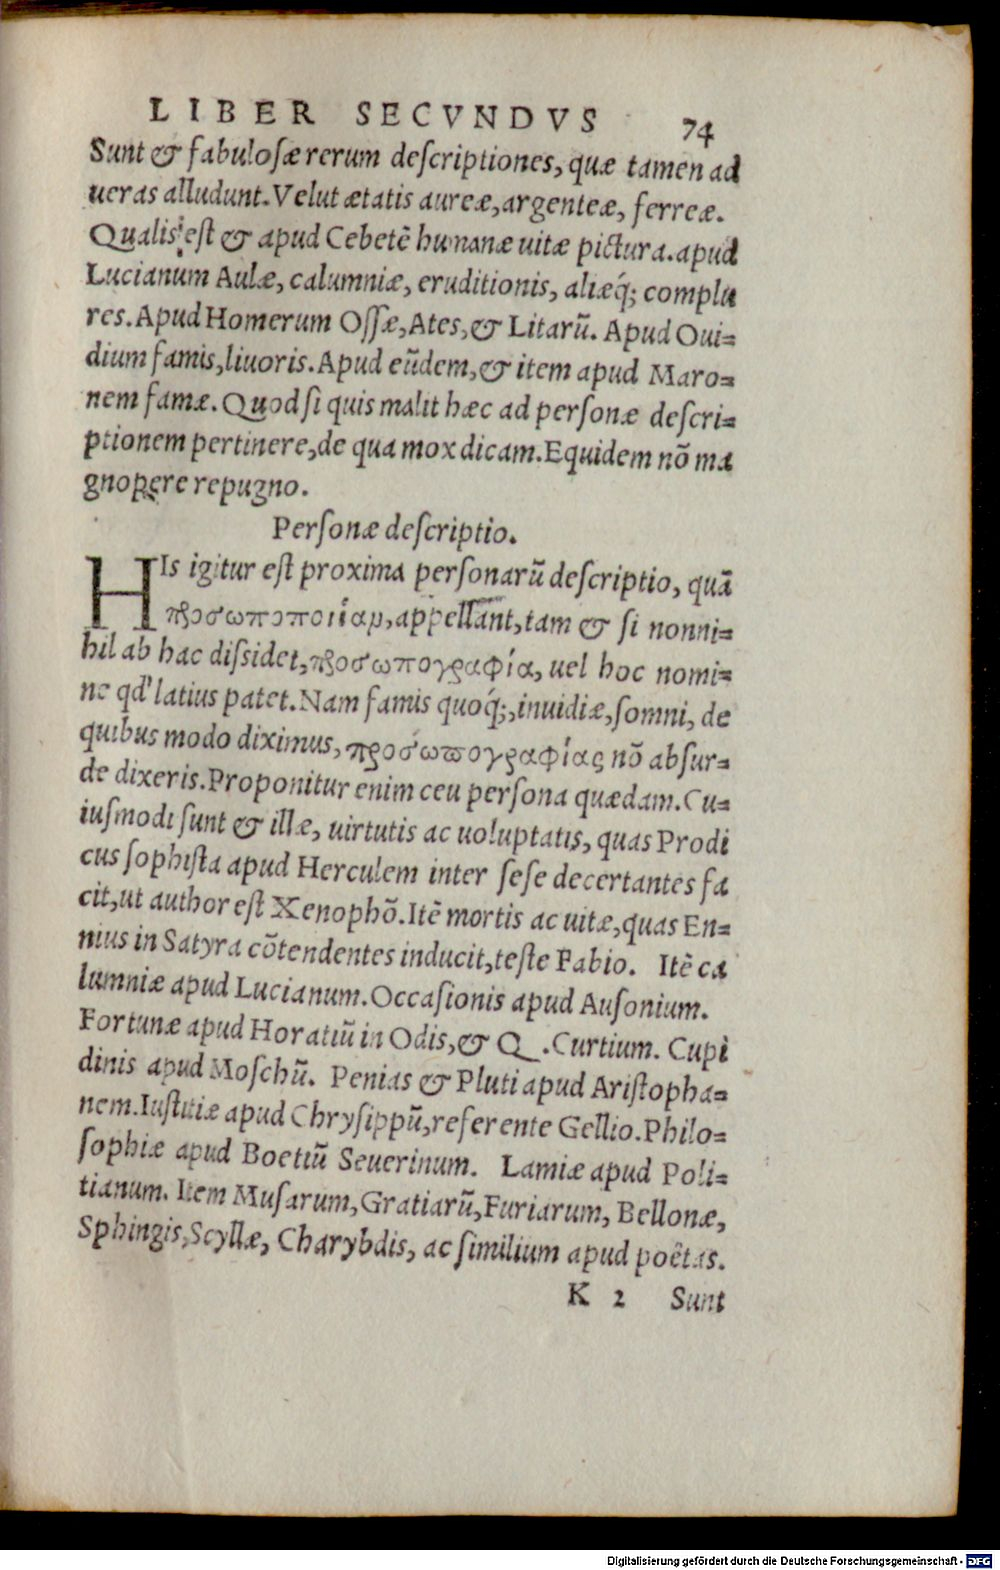 LIBER SECVNDVS 74
Sunt & fabulosæ rerum descriptiones, quæ tamen ad
ueras alludunt. Velut ætatis aureæ, argenteæ, ferreæ.
Qualis est & apud Cebetē humanæ uitæ pictura. apud
Lucianum Aulæ, calumniæ, eruditionis, aliæq́; complu
res. Apud Homerum Ossæ, Ates, & Litarū. Apud Oui=
dium famis, liuoris. Apud eūdem, & item apud Maro=
nem famæ. Quod si quis malit hæc ad personæ descri=
ptionem pertinere, de qua mox dicam. Equidem nō ma
gnopere repugno.
Personæ descriptio.
HIs igitur est proxima personarū descriptio, quā
προσωποποιίαμ, appellant, tam & si nonni=
hil ab hac dissidet, προσωπογραφία, uel hoc nomi=
ne qd' latius patet. Nam famis quoq́;, inuidiæ, somni, de
quibus modo diximus, προσωπογραφίας nō absur=
de dixeris. Proponitur enim ceu persona quædam. Cu=
iusmodi sunt & illæ, uirtutis ac uoluptatis, quas Prodi
cus sophista apud Herculem inter sese decertantes fa
cit, ut author est Xenophō. Itē mortis ac uitæ, quas En=
nius in Satyra cōtendentes inducit, teste Fabio. Itē ca
lumniæ apud Lucianum. Occasionis apud Ausonium.
Fortunæ apud Horatiū in Odis, & Q. Curtium. Cupi
dinis apud Moschū. Penias & Pluti apud Aristopha=
nem. Iustitiæ apud Chrysippū, referente Gellio. Philo=
sophiæ apud Boetiū Seuerinum. Lamiæ apud Poli=
tianum. Item Musarum, Gratiarū, Furiarum, Bellonæ,
Sphingis, Scyllæ, Charybdis, ac similium apud poëtas.
K 2 Sunt
Digitalisierung gefördert durch die Deutsche Forschungsgemeinschaft - DFG